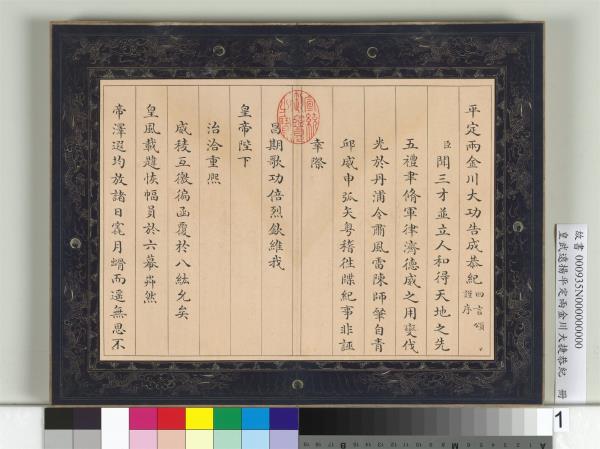 平定兩金川大功告成恭紀 四言頌 謹序
臣聞三才並立人和得天地之先
五禮聿脩軍律濟德威之用燮伐
光於丹浦令肅風雷陳師肇自青
邱威申弧矢粵稽徃牒紀事非誣
幸際
昌期歌功倍烈欽維我
皇帝陛下
治洽重熙
威稜亙徼徧函覆於八紘允矣
皇風載趩恢幅員於六幕
帝澤遐均放諸日窟月䯝而遥無思不
故書 000935N000000000
皇武遠揚平定兩金川大捷恭紀 冊
1